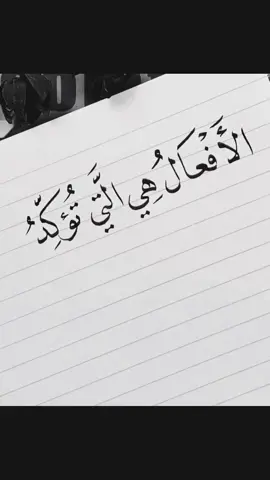 الأَفْعَالُ هِي الَّتِي تُؤَكِّدُ